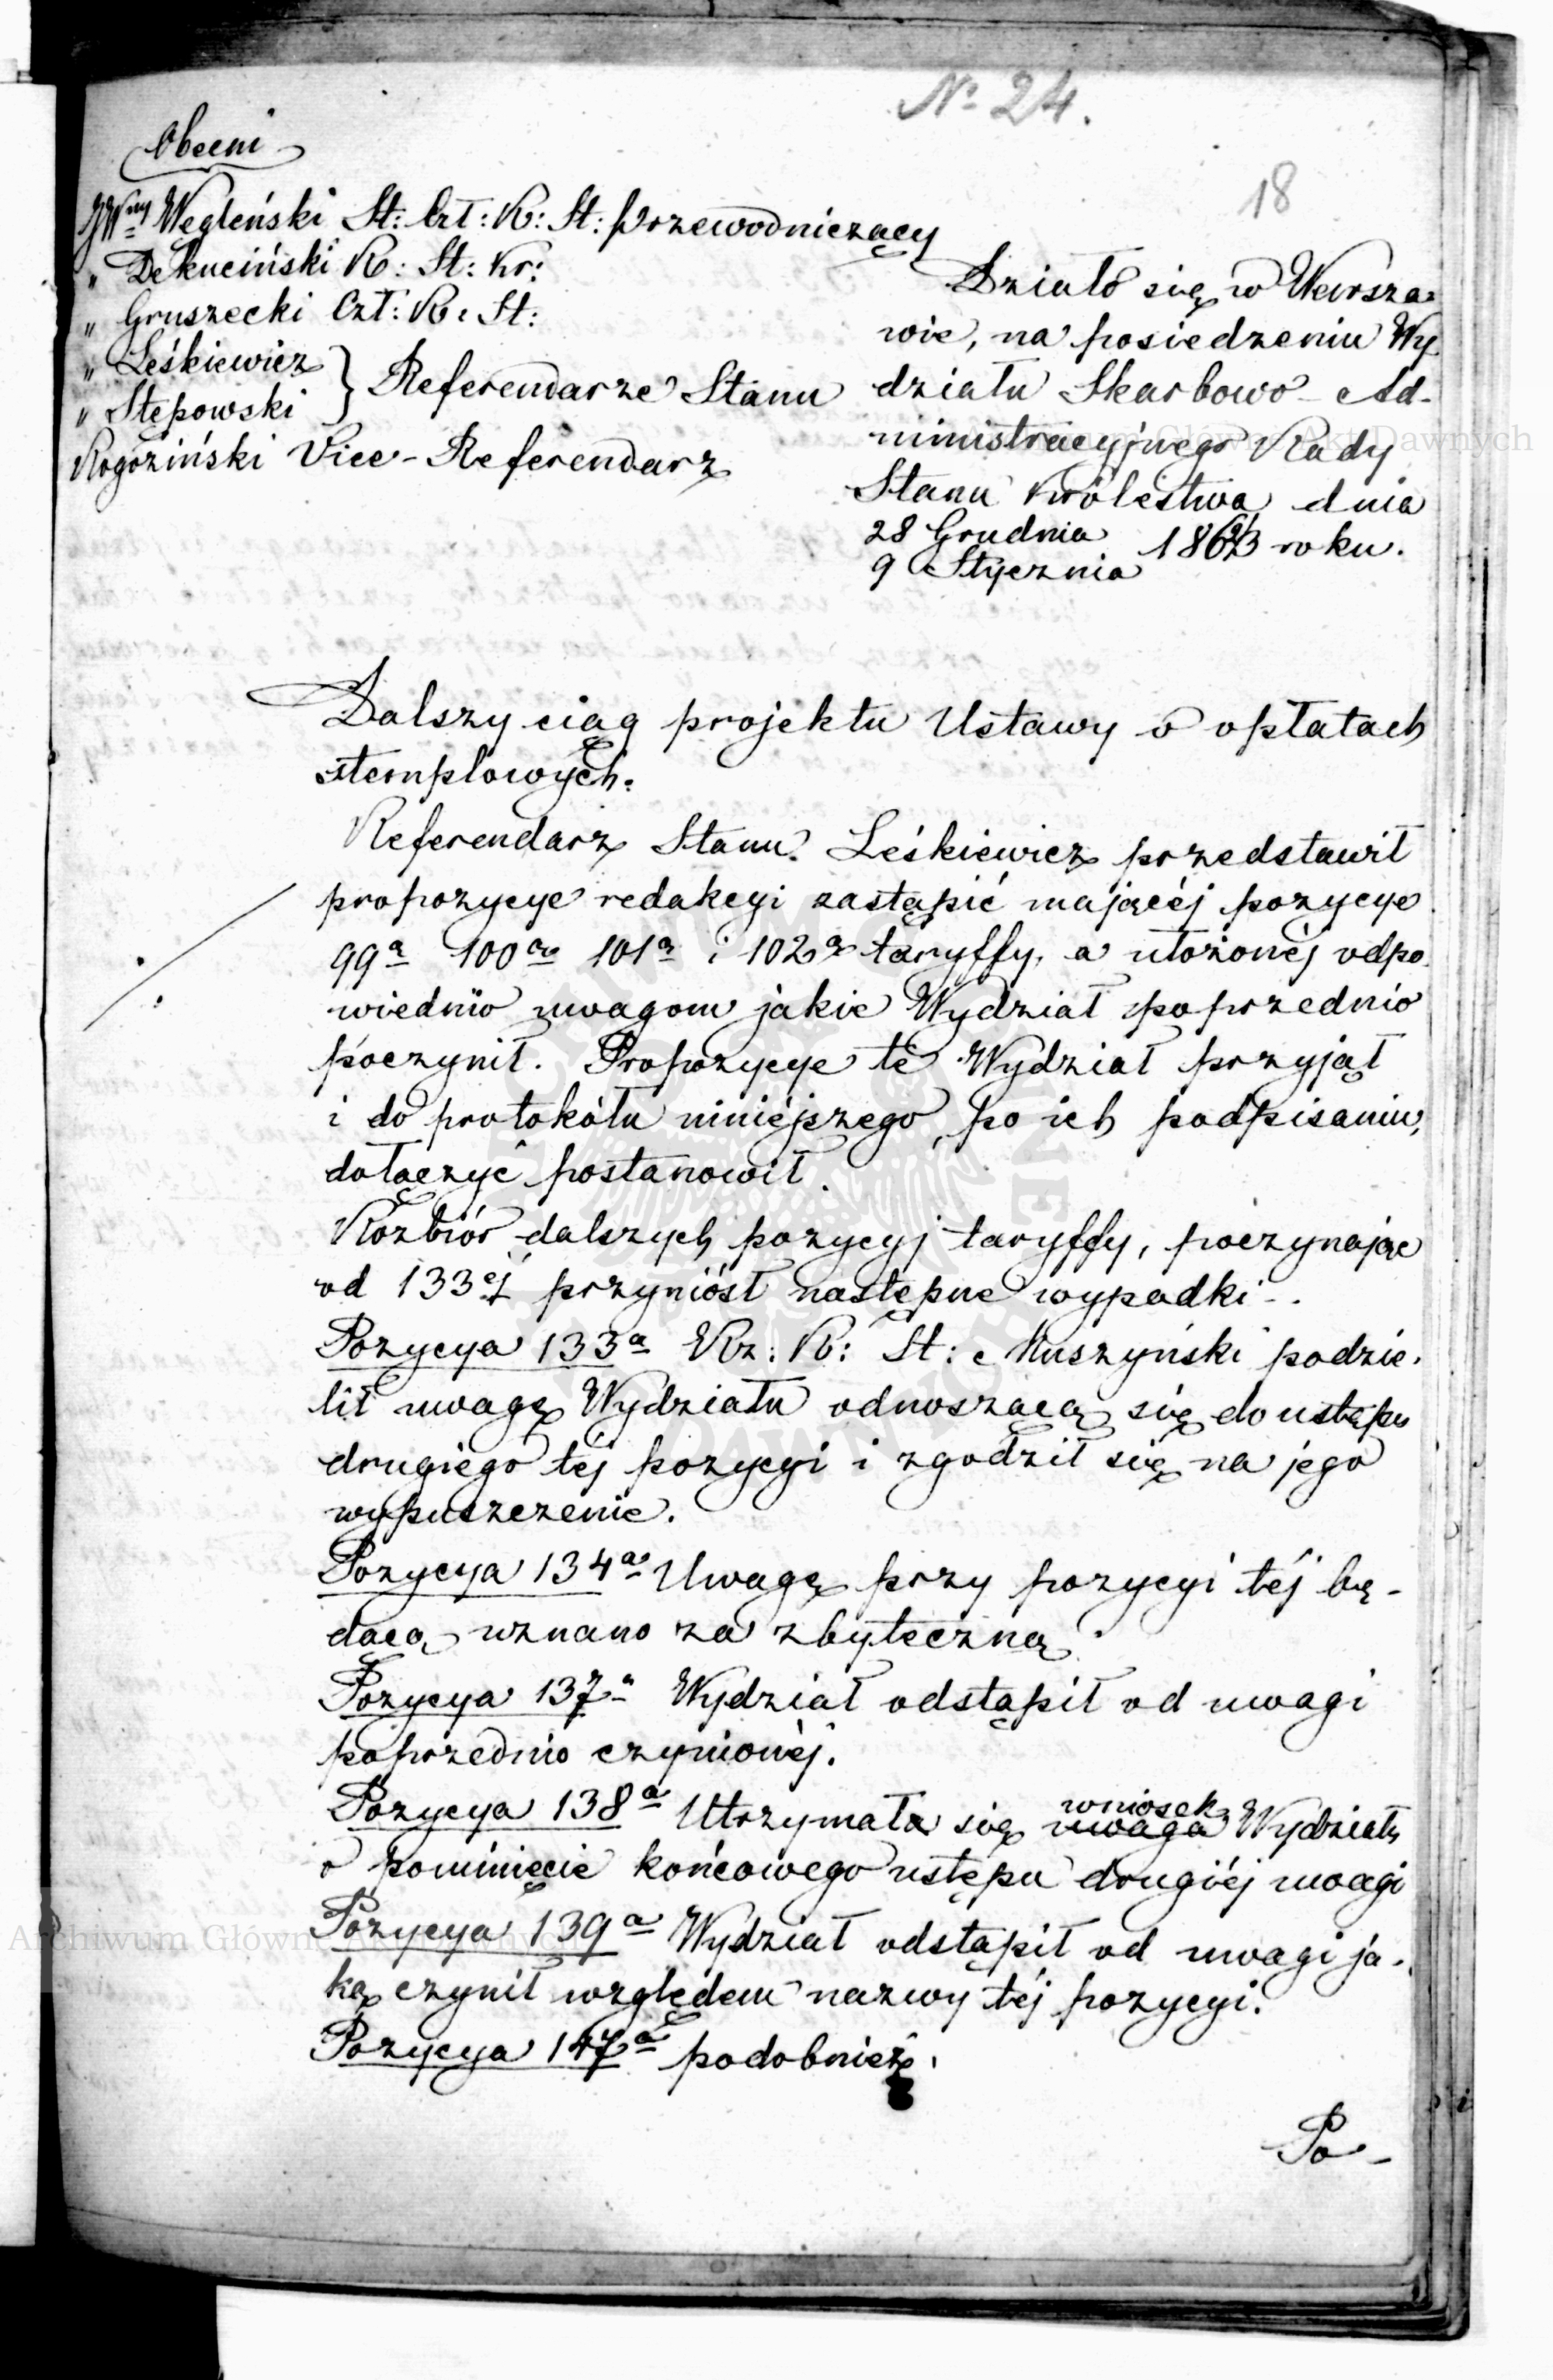 Nº 24.
18
Obecni
JW^ny Węgleński St: Czł: R: St: Przewodniczący
„ Dekuciński R: St: Kr:
„ Gruszecki Czł: R: St:
„ Leśkiewicz
„ Stępowski } Referendarze Stanu
Rogoziński Vice-Referendarz
Działo się w Warsza-
wie, na posiedzeniu Wy-
działu Skarbowo-Ad-
ministracyjnego Rady
Stanu Królestwa dnia
28 Grudnia
9 Stycznia 1862/3 roku.
Dalszy ciąg projektu Ustawy o opłatach
stemplowych.
Referendarz Stanu Leśkiewicz przedstawił
propozycye redakcyi zastąpić mającéj pozycye
99ª 100ª 101ª i 102ª taryffy, a ułożonéj odpo-
wiednio uwagom jakie Wydział poprzednio
poczynił. Propozycye te Wydział przyjął
i do protokółu niniejszego, po ich podpisaniu,
dołączyć postanowił.
Rozbiór dalszych pozycyj taryffy, poczynając
od 133éj przyniósł następne wypadki.
Pozycya 133ª Rz: R: St: Muszyński podzie-
lił uwagę Wydziału odnoszącą się do ustępu
drugiego téj pozycyi i zgodził się na jego
wypuszczenie.
Pozycya 134ª Uwagę przy pozycyi téj bę-
dącą uznano za zbyteczną.
Pozycya 137ª Wydział odstąpił od uwagi
poprzednio czynionéj.
Pozycya 138ª Utrzymała się uwaga wniosek Wydziału
o pominięcie końcowego ustępu drugiéj uwagi
Pozycya 139ª Wydział odstąpił od uwagi ja-
ką czynił względem nazwy téj pozycyi.
Pozycya 147ª podobnież.
Po-
Archiwum Główne Akt Dawnych
Archiwum Główne Akt Dawnych